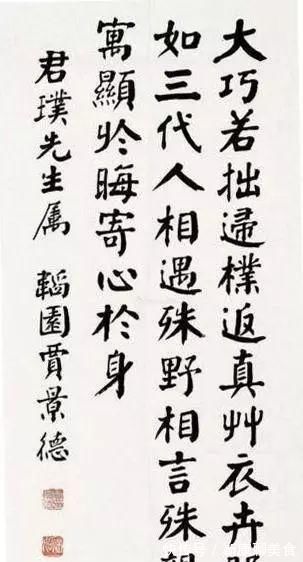 大巧若拙歸樸返真艸衣卉
如三代人相遇殊野相言殊
寓顯於晦寄心於身
君璞先生属 韜園賈景德